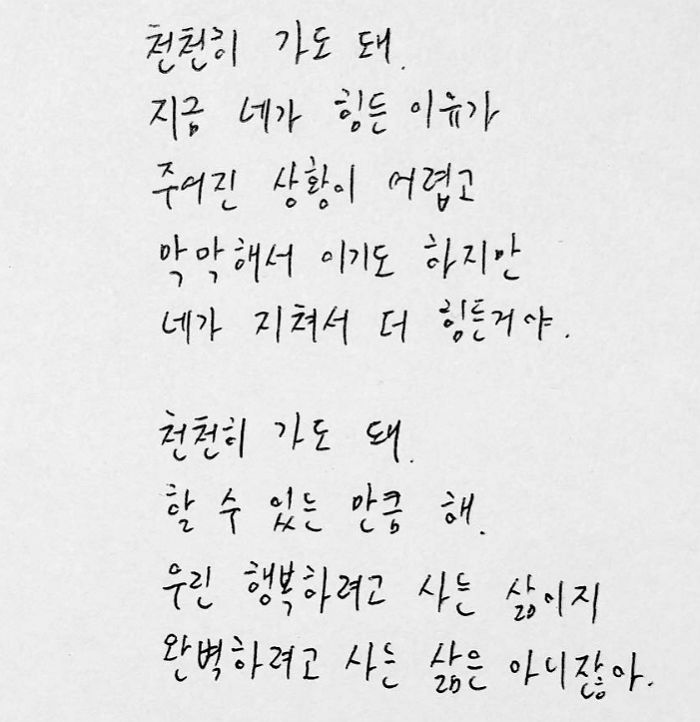 천천히 가도 돼.
지금 네가 힘든 이유가
주어진 상황이 어렵고
막막해서 이기도 하지만
네가 지쳐서 더 힘든거야.
천천히 가도 돼.
할 수 있는 만큼 해.
우린 행복하려고 사는 삶이지
완벽하려고 사는 삶은 아니잖아.